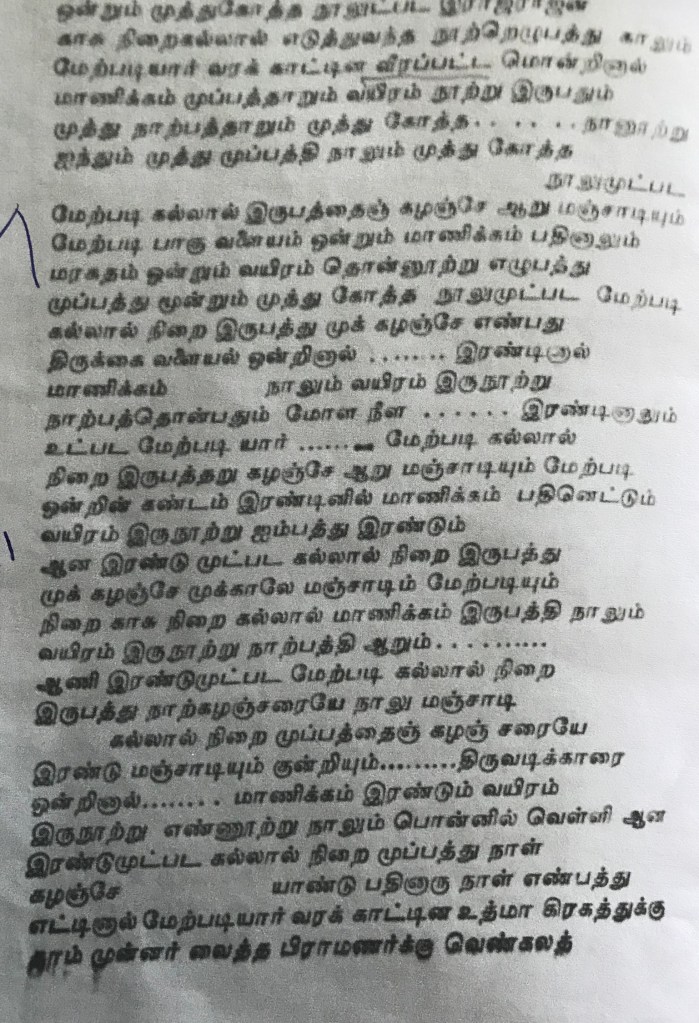 ஒன்றும் முத்துகோத்த நாலுட்பட இராஜராஜன்
காசு நிறைகல்லால் எடுத்துவந்த நூற்றெழுபத்து காலும்
மேற்படியார் வரக் காட்டின வீரப்பட்ட மொன்றினால்
மாணிக்கம் முப்பத்தாறும் வயிரம் நூற்று இருபதும்
முத்து நாற்பத்தாறும் முத்து கோத்த. . . . . .நானூற்று
ஐந்தும் முத்து முப்பத்தி நாலும் முத்து கோத்த
நாலுமுட்பட
மேற்படி கல்லால் இருபத்தைஞ் கழஞ்சே ஆறு மஞ்சாடியும்
மேற்படி பாகு வளையம் ஒன்றும் மாணிக்கம் பதினாலும்
மரகதம் ஒன்றும் வயிரம் தொண்ணூற்று எழுபத்து
முப்பத்து மூன்றும் முத்து கோத்த நாலுமுட்பட மேற்படி
கல்லால் நிறை இருபத்து முக் கழஞ்சே எண்பது
திருக்கை வளையல் ஒன்றினால் ........ இரண்டினால்
மாணிக்கம் நாலும் வயிரம் இருநூற்று
நாற்பத்தொன்பதும் மோள நீள . . . . . . இரண்டினாலும்
உட்பட மேற்படி யார் ...... மேற்படி கல்லால்
நிறை இருபத்தறு கழஞ்சே ஆறு மஞ்சாடியும் மேற்படி
ஒன்றின் கண்டம் இரண்டினில் மாணிக்கம் பதினெட்டும்
வயிரம் இருநூற்று ஐம்பத்து இரண்டும்
ஆன இரண்டு முட்பட கல்லால் நிறை இருபத்து
முக் கழஞ்சே முக்காலே மஞ்சாடிம் மேற்படியும்
நிறை காசு நிறை கல்லால் மாணிக்கம் இருபத்தி நாலும்
வயிரம் இருநூற்று நாற்பத்தி ஆறும்..........
ஆணி இரண்டுமுட்பட மேற்படி கல்லால் நிறை
இருபத்து நாற்கழஞ்சரையே நாலு மஞ்சாடி
கல்லால் நிறை முப்பத்தைஞ் கழஞ் சரையே
இரண்டு மஞ்சாடியும் குன்றியும்.........திருவடிக்காரை
ஒன்றினால்........ மாணிக்கம் இரண்டும் வயிரம்
இருநூற்று எண்ணூற்று நாலும் பொன்னில் வெள்ளி ஆன
இரண்டுமுட்பட கல்லால் நிறை முப்பத்து நாள்
கழஞ்சே யாண்டு பதினாரு நாள் எண்பத்து
எட்டினால் மேற்படியார் வரக் காட்டின உத்மா கிரகத்துக்கு
தாம் முன்னர் வைத்த பிராமணர்க்கு வெண்கலத்